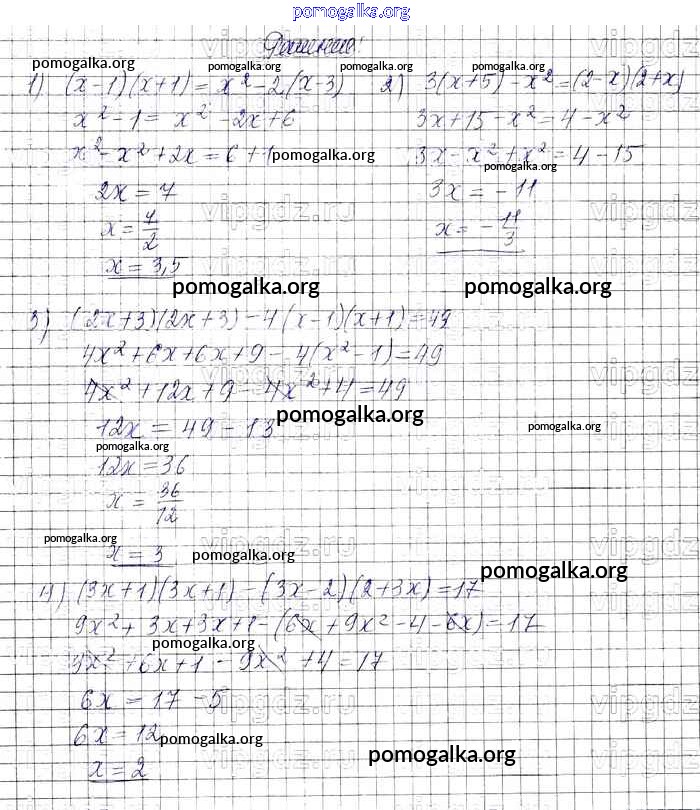 pomogalka.org
Решение:
pomogalka.org pomogalka.org pomogalka.org pomogalka.org
1) (x-1)(x+1) = x²-2(x-3) 2) 3(x+5)-x²=(2-x)(2+x)
x²-1 = x²-2x+6 3x+15-x²=4-x²
x²-x²+2x=6+1 pomogalka.org 3x-x²+x²=4-15
pomogalka.org
2x=7 3x=-11
vipgdz.ru
x=7/2 x=-11/3
x=3,5
pomogalka.org pomogalka.org
3) (2x+3)(2x+3)-4(x-1)(x+1)=49
4x²+6x+6x+9-4(x²-1)=49
4x²+12x+9-4x²+4=49
pomogalka.org
12x=49-13 pomogalka.org
pomogalka.org
12x=36
x=36/12
vipgdz.ru
pomogalka.org
x=3 pomogalka.org
pomogalka.org
4) (3x+1)(3x+1)-(3x-2)(2+3x)=17
9x²+3x+3x+1-(6x+9x²-4-6x)=17
pomogalka.org
9x²+6x+1-9x²+4=17
6x=17-5
vipgdz.ru
6x=12 pomogalka.org
pomogalka.org
x=2